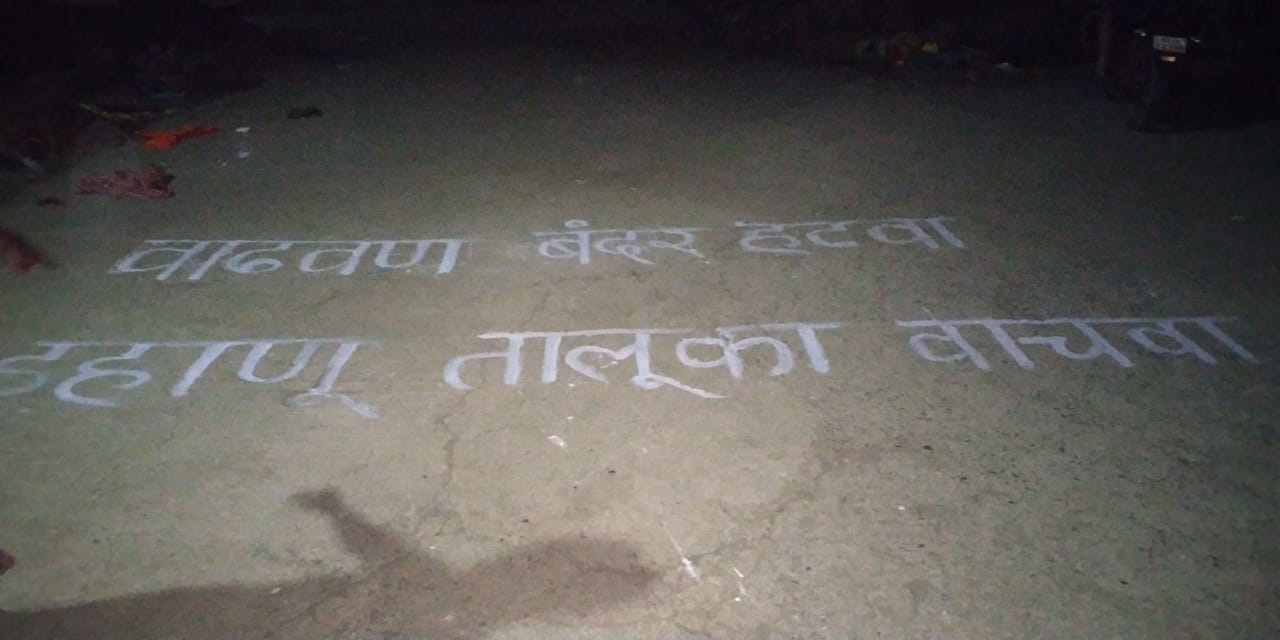 वाढवण बंदर हटवा
डहाणू तालूका वाचवा